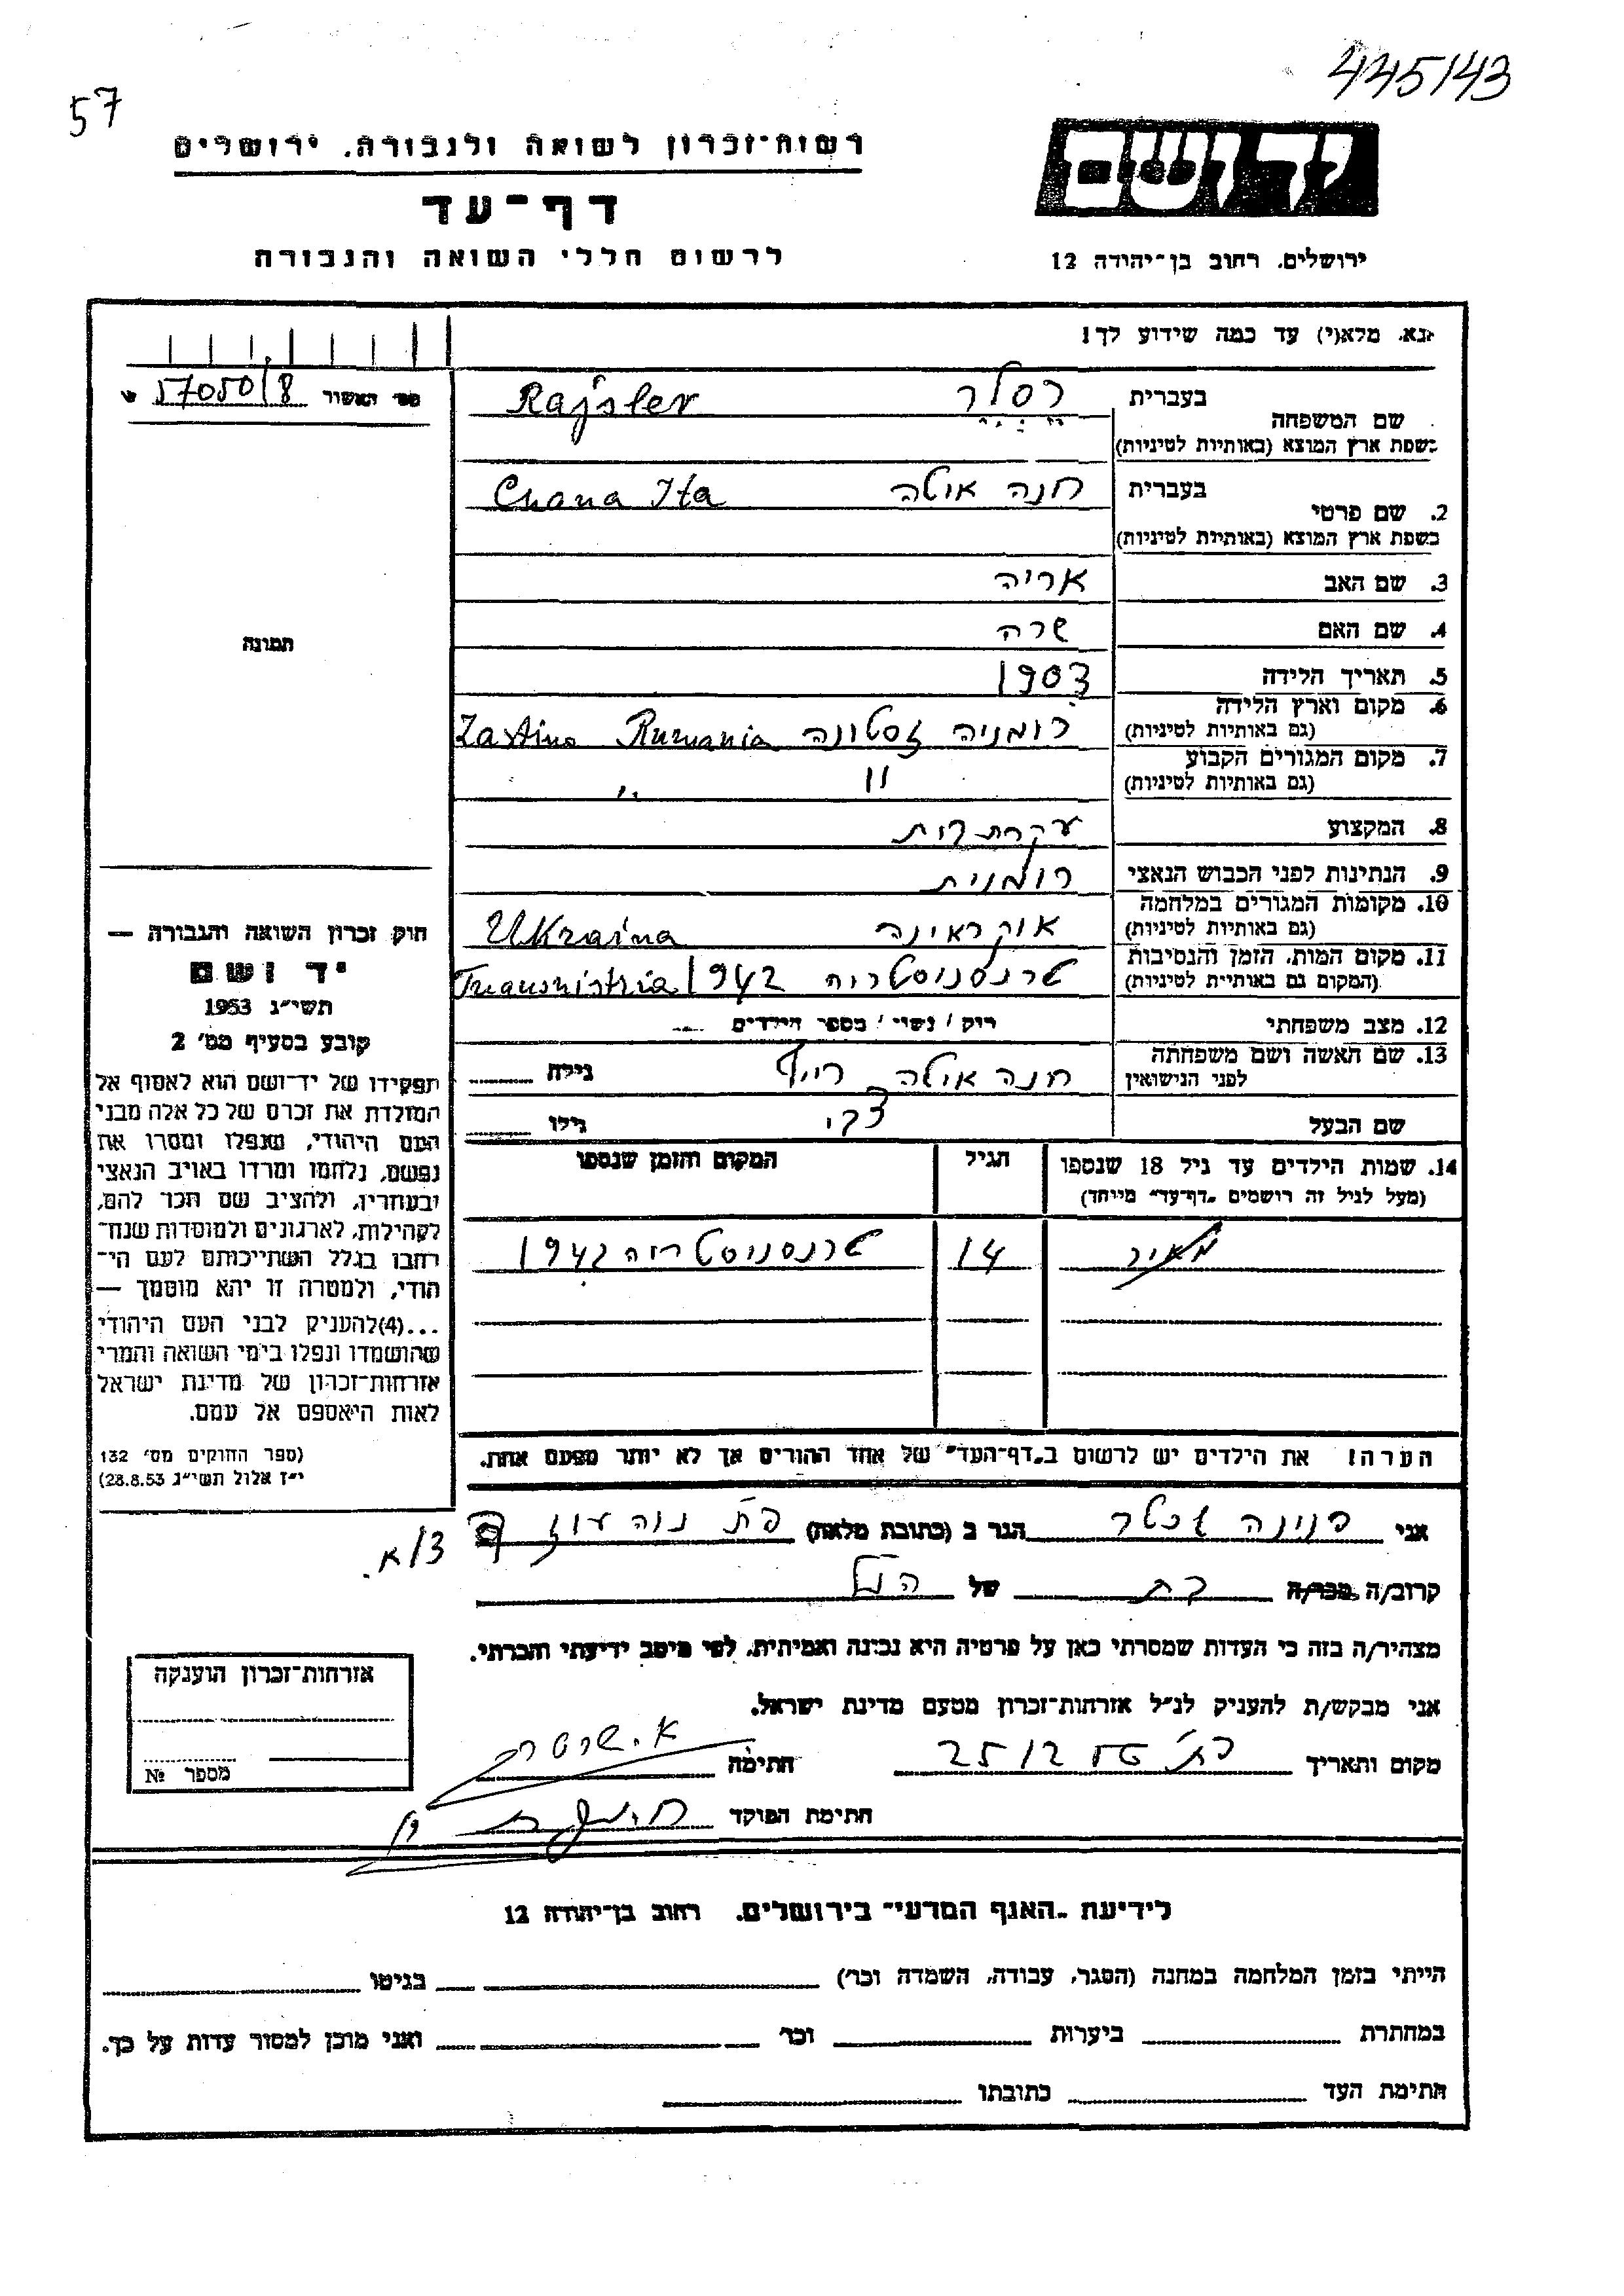 445143
57
יד ושם
רשות-זכרון לשואה ולגבורה, ירושלים
דף-עד
לרשום חללי השואה והגבורה
ירושלים, רחוב בן-יהודה 12
נא, מלא(י) עד כמה שידוע לך!
מס' האשור 57050/8
בעברית רסלר Rajsler
שם המשפחה
בשפת ארץ המוצא (באותיות לטיניות)
בעברית חנה איטה Chana Ita
2. שם פרטי
בשפת ארץ המוצא (באותיות לטיניות)
3. שם האב אריה
4. שם האם שרה
5. תאריך הלידה 1903
6. מקום וארץ הלידה רומניה זסטונה Rumania
(גם באותיות לטיניות)
7. מקום המגורים הקבוע " "
(גם באותיות לטיניות)
8. המקצוע עקרת בית
9. הנתינות לפני הכבוש הנאצי רומנית
10. מקומות המגורים במלחמה אוקראינה Ukraina
(גם באותיות לטיניות)
11. מקום המות, הזמן והנסיבות טרנסניסטריה 1942 Transnistria
(המקום גם באותיות לטיניות)
12. מצב משפחתי רוק / נשוי / מספר הילדים
13. שם האשה ושם משפחתה חנה איטה רייף גילה
לפני הנישואין
שם הבעל צבי גילו
14. שמות הילדים עד גיל 18 שנספו הגיל המקום והזמן שנספו
(מעל לגיל זה רושמים "דף-עד" מייחד)
מאיר 14 טרנסניסטריה 1942
הערה! את הילדים יש לרשום ב"דף-העד" של אחד ההורים אך לא יותר מפעם אחת.
תמונה
חוק זכרון השואה והגבורה —
יד ושם
תשי"ג 1953
קובע בסעיף מס' 2
תפקידו של יד-ושם הוא לאסוף אל
המולדת את זכרם של כל אלה מבני
העם היהודי, שנפלו ומסרו את
נפשם, נלחמו ומרדו באויב הנאצי
ובעוזריו, ולהציב שם וזכר להם,
לקהילות, לארגונים ולמוסדות שנח־
רבו בגלל השתייכותם לעם הי־
הודי, ולמטרה זו יהא מוסמך —
...(4)להעניק לבני העם היהודי
שהושמדו ונפלו בימי השואה והמרי
אזרחות-זכרון של מדינת ישראל
לאות היאספם אל עמם.
(ספר החוקים מס' 132
י"ז אלול תשי"ג 28.8.53)
אני פנינה הגר ב (כתובת מלאה) פת נוה עוז 3/א.
קרוב/ה מכר/ה בת של הנ"ל
מצהיר/ה בזה כי העדות שמסרתי כאן על פרטיה היא נכונה ואמיתית, לפי מיטב ידיעתי והכרתי.
אני מבקש/ת להעניק לנ"ל אזרחות-זכרון מטעם מדינת ישראל.
מקום ותאריך 25/12 חתימה
חתימת הפוקד
אזרחות-זכרון הוענקה
מספר №
לידיעת "האגף המדעי" בירושלים, רחוב בן-יהודה 12
הייתי בזמן המלחמה במחנה (הסגר, עבודה, השמדה וכו') בגיטו
במחתרת ביערות וכו' ואני מוכן למסור עדות על כך.
חתימת העד כתובתו